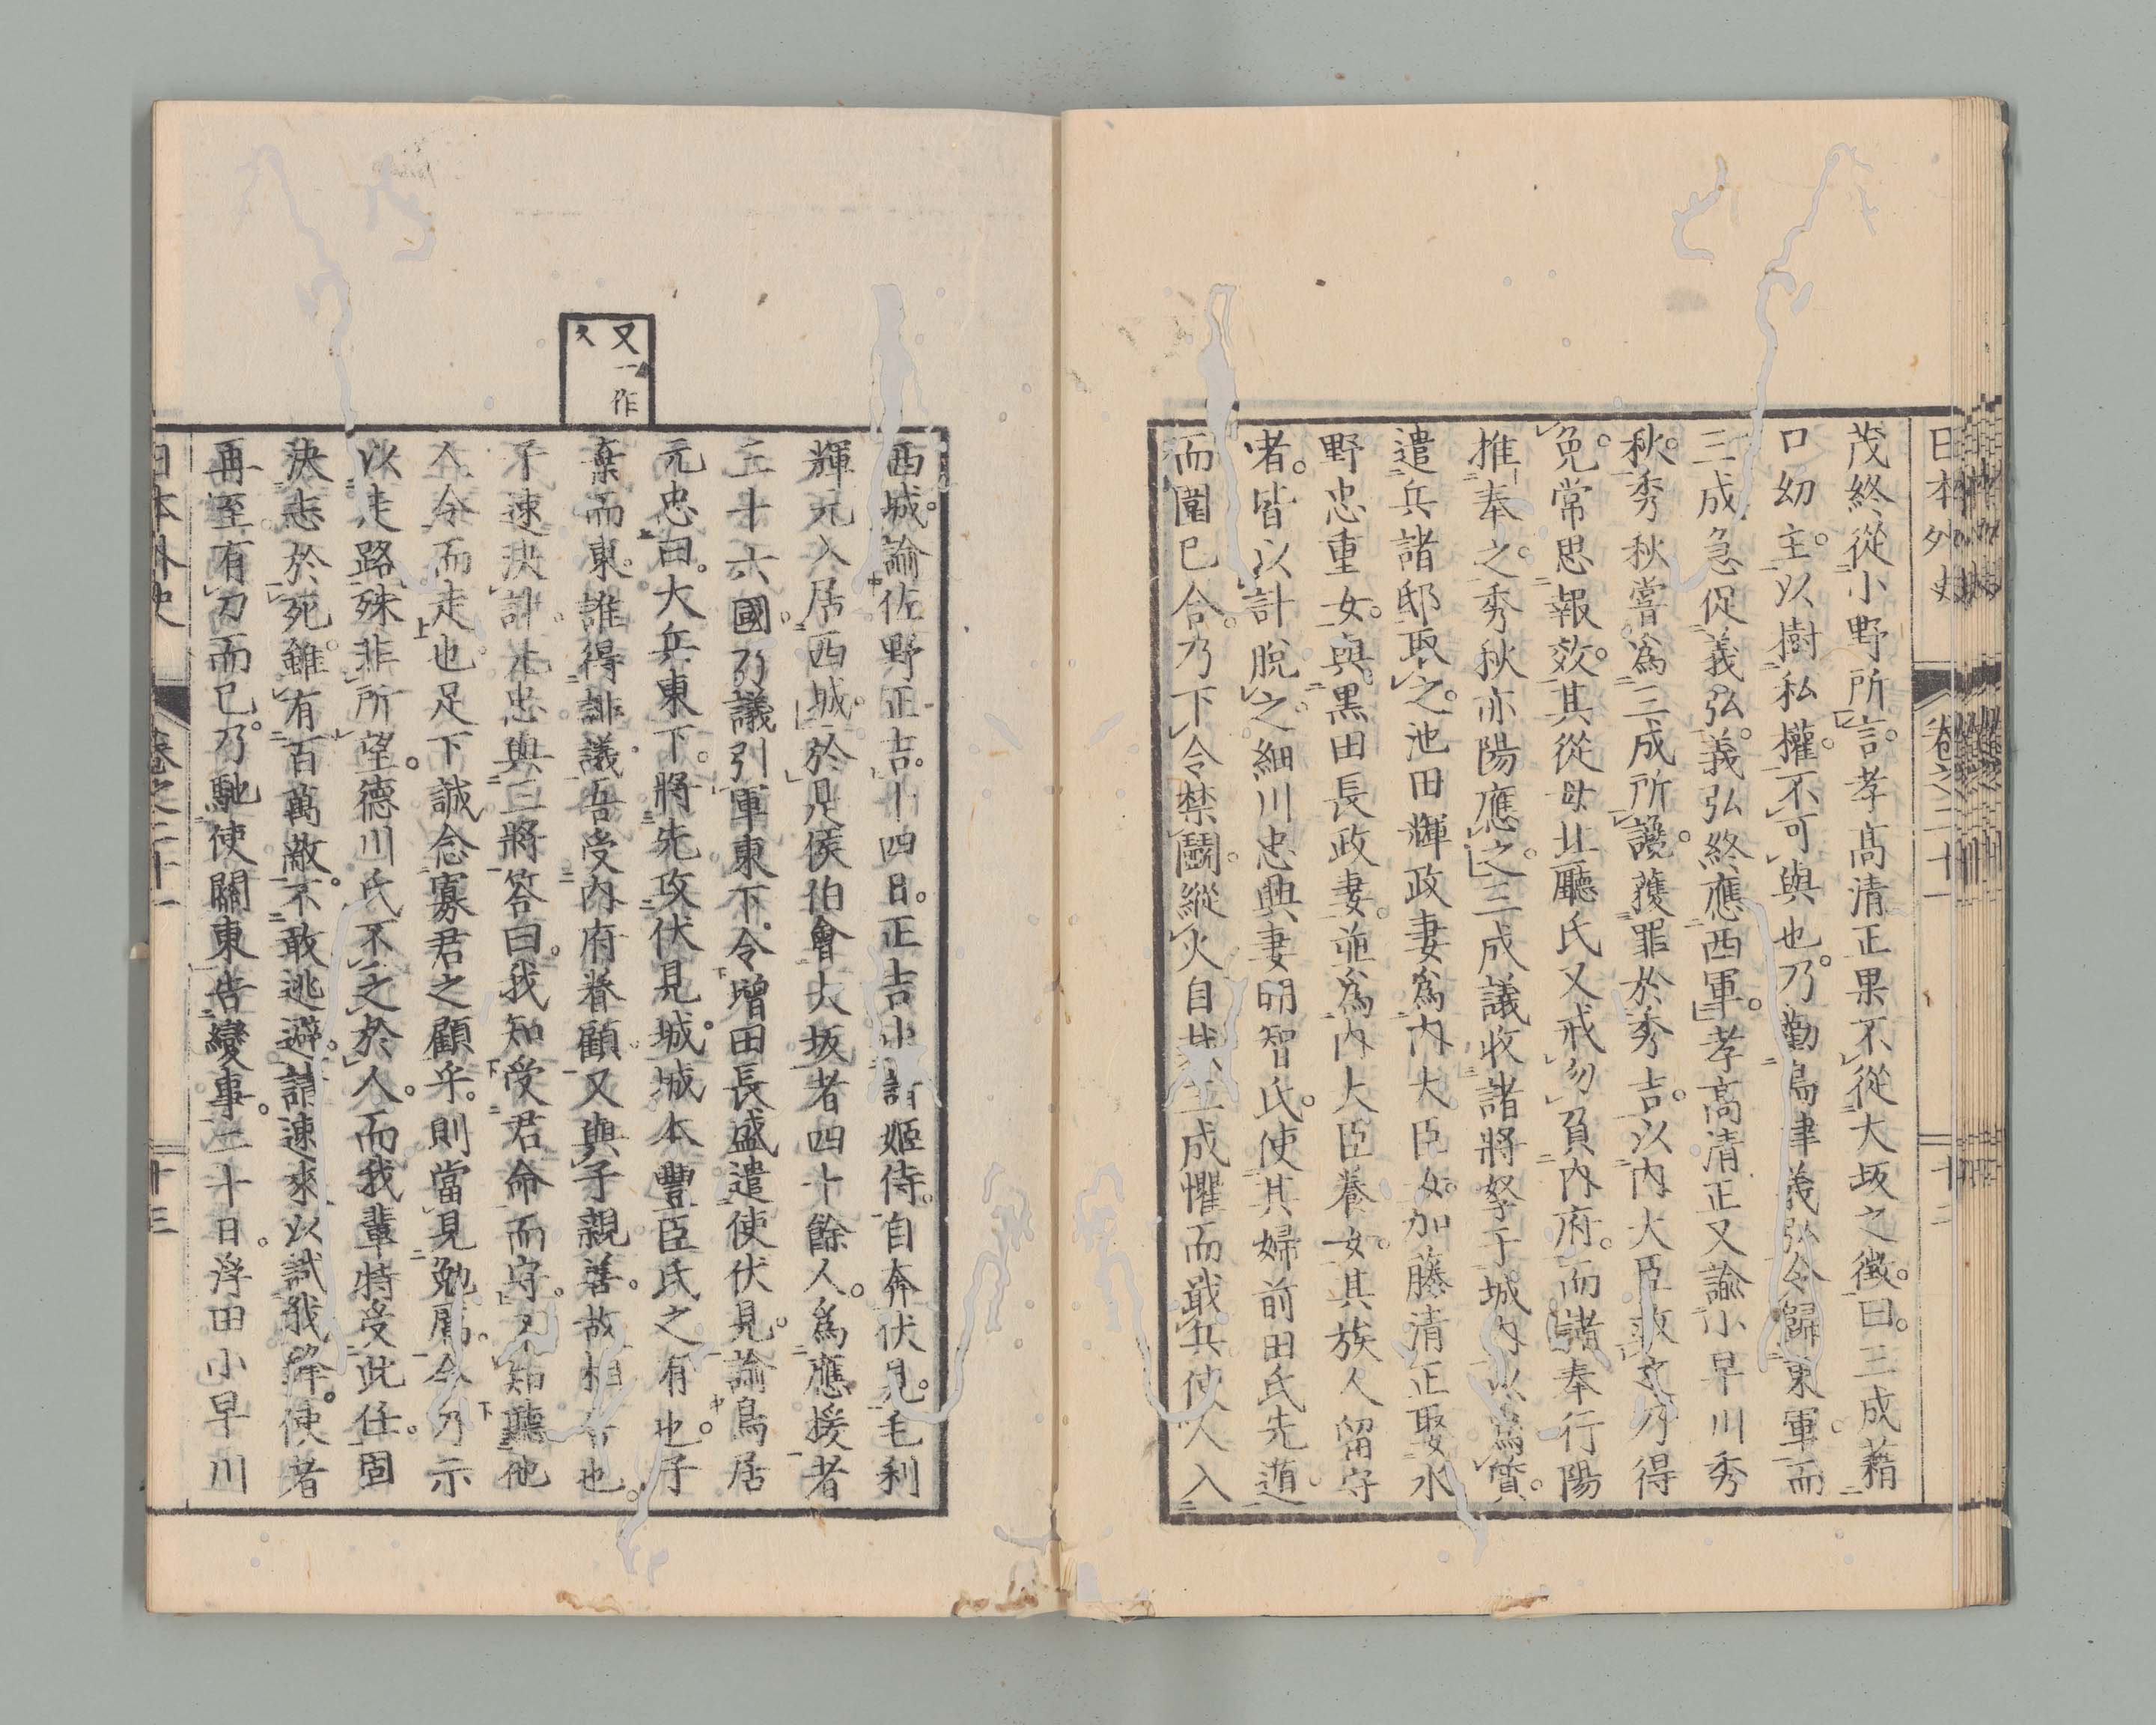 日本外史 卷之二十一 十二
茂終從小野所言。孝高清正果不從大坂之徵。曰。三成藉
口幼主。以樹私權。不可與也。乃勸島津義弘令歸東軍。而
三成急促義弘。義弘終應西軍。孝高清正又諭小早川秀
秋。秀秋嘗爲三成所讒。獲罪於秀吉。以内大臣救之乃得
免。常思報效。其從母北廳氏又戒勿負内府。而諸奉行陽
推奉之。秀秋亦陽應之。三成議收諸將孥于城内以爲質。
遣兵諸邸取之。池田輝政妻爲内大臣女。加藤清正娶水
野忠重女。與黒田長政妻。並爲内大臣養女。其族人留守
者。皆以計脫之。細川忠興妻明智氏。使其婦前田氏先遁。
而圍已合。乃下令禁鬪。縱火自裁。三成懼而戢兵使人入
西城。諭佐野正吉。十四日。正吉出諸姬侍。自奔伏見。毛利
輝元入居西城。於是侯伯會大坂者四十餘人。爲應援者
二十六國。乃議引軍東下。令增田長盛遣使伏見。諭鳥居
元忠曰。大兵東下。將先攻伏見城。城本豐臣氏之有也。子
棄而東。誰得誹議。吾受内府眷顧。又與子親善。故相告也。
子速決計。元忠與三將答曰。我知受君命而守。不知聽他
人令而走也。足下誠念寡君之顧乎。則當見勉厲。今乃示
以走路。殊非所望。德川氏不乏於人。而我輩特受此任。固
決志於死。雖有百萬敵。不敢逃避。請速來以試我鋒。使者
再至。有刀而已。乃馳使關東告變事。二十日。浮田小早川
又一作
久
日本外史 卷之二十一 十三